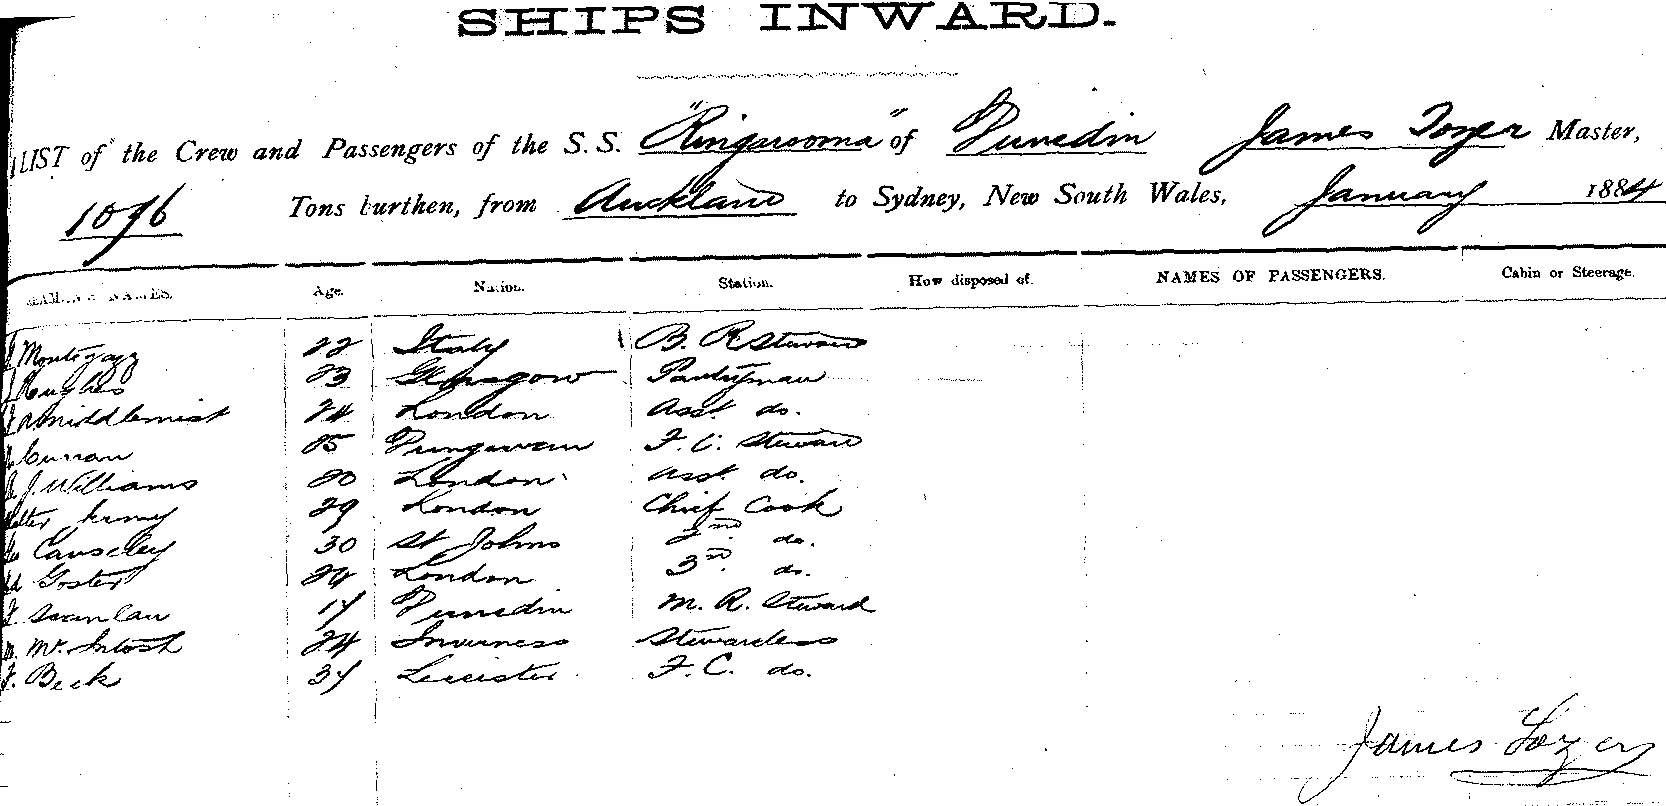 SHIPS INWARD.
LIST of the Crew and Passengers of the S. S. "Ringarooma" of Dunedin James Tozer Master,
1096 Tons burthen, from Auckland to Sydney, New South Wales, January 1884
NAMES. Age. Nation. Station. How disposed of. NAMES OF PASSENGERS. Cabin or Steerage.
22 Italy B. R Steward
Hughes 23 Glasgow Pantryman
Middlemist 24 London Asst. do.
Curran 25 F. C. Steward
J. Williams 20 London Asst. do.
29 London Chief Cook
Causeley 30 St Johns 2nd. do.
24 London 3rd. do.
Scanlan 17 Dunedin M. R. Steward
M. Mc. Intosh 24 Inverness Stewardess
F. Beck 37 Leicester F. C. do.
James Tozer